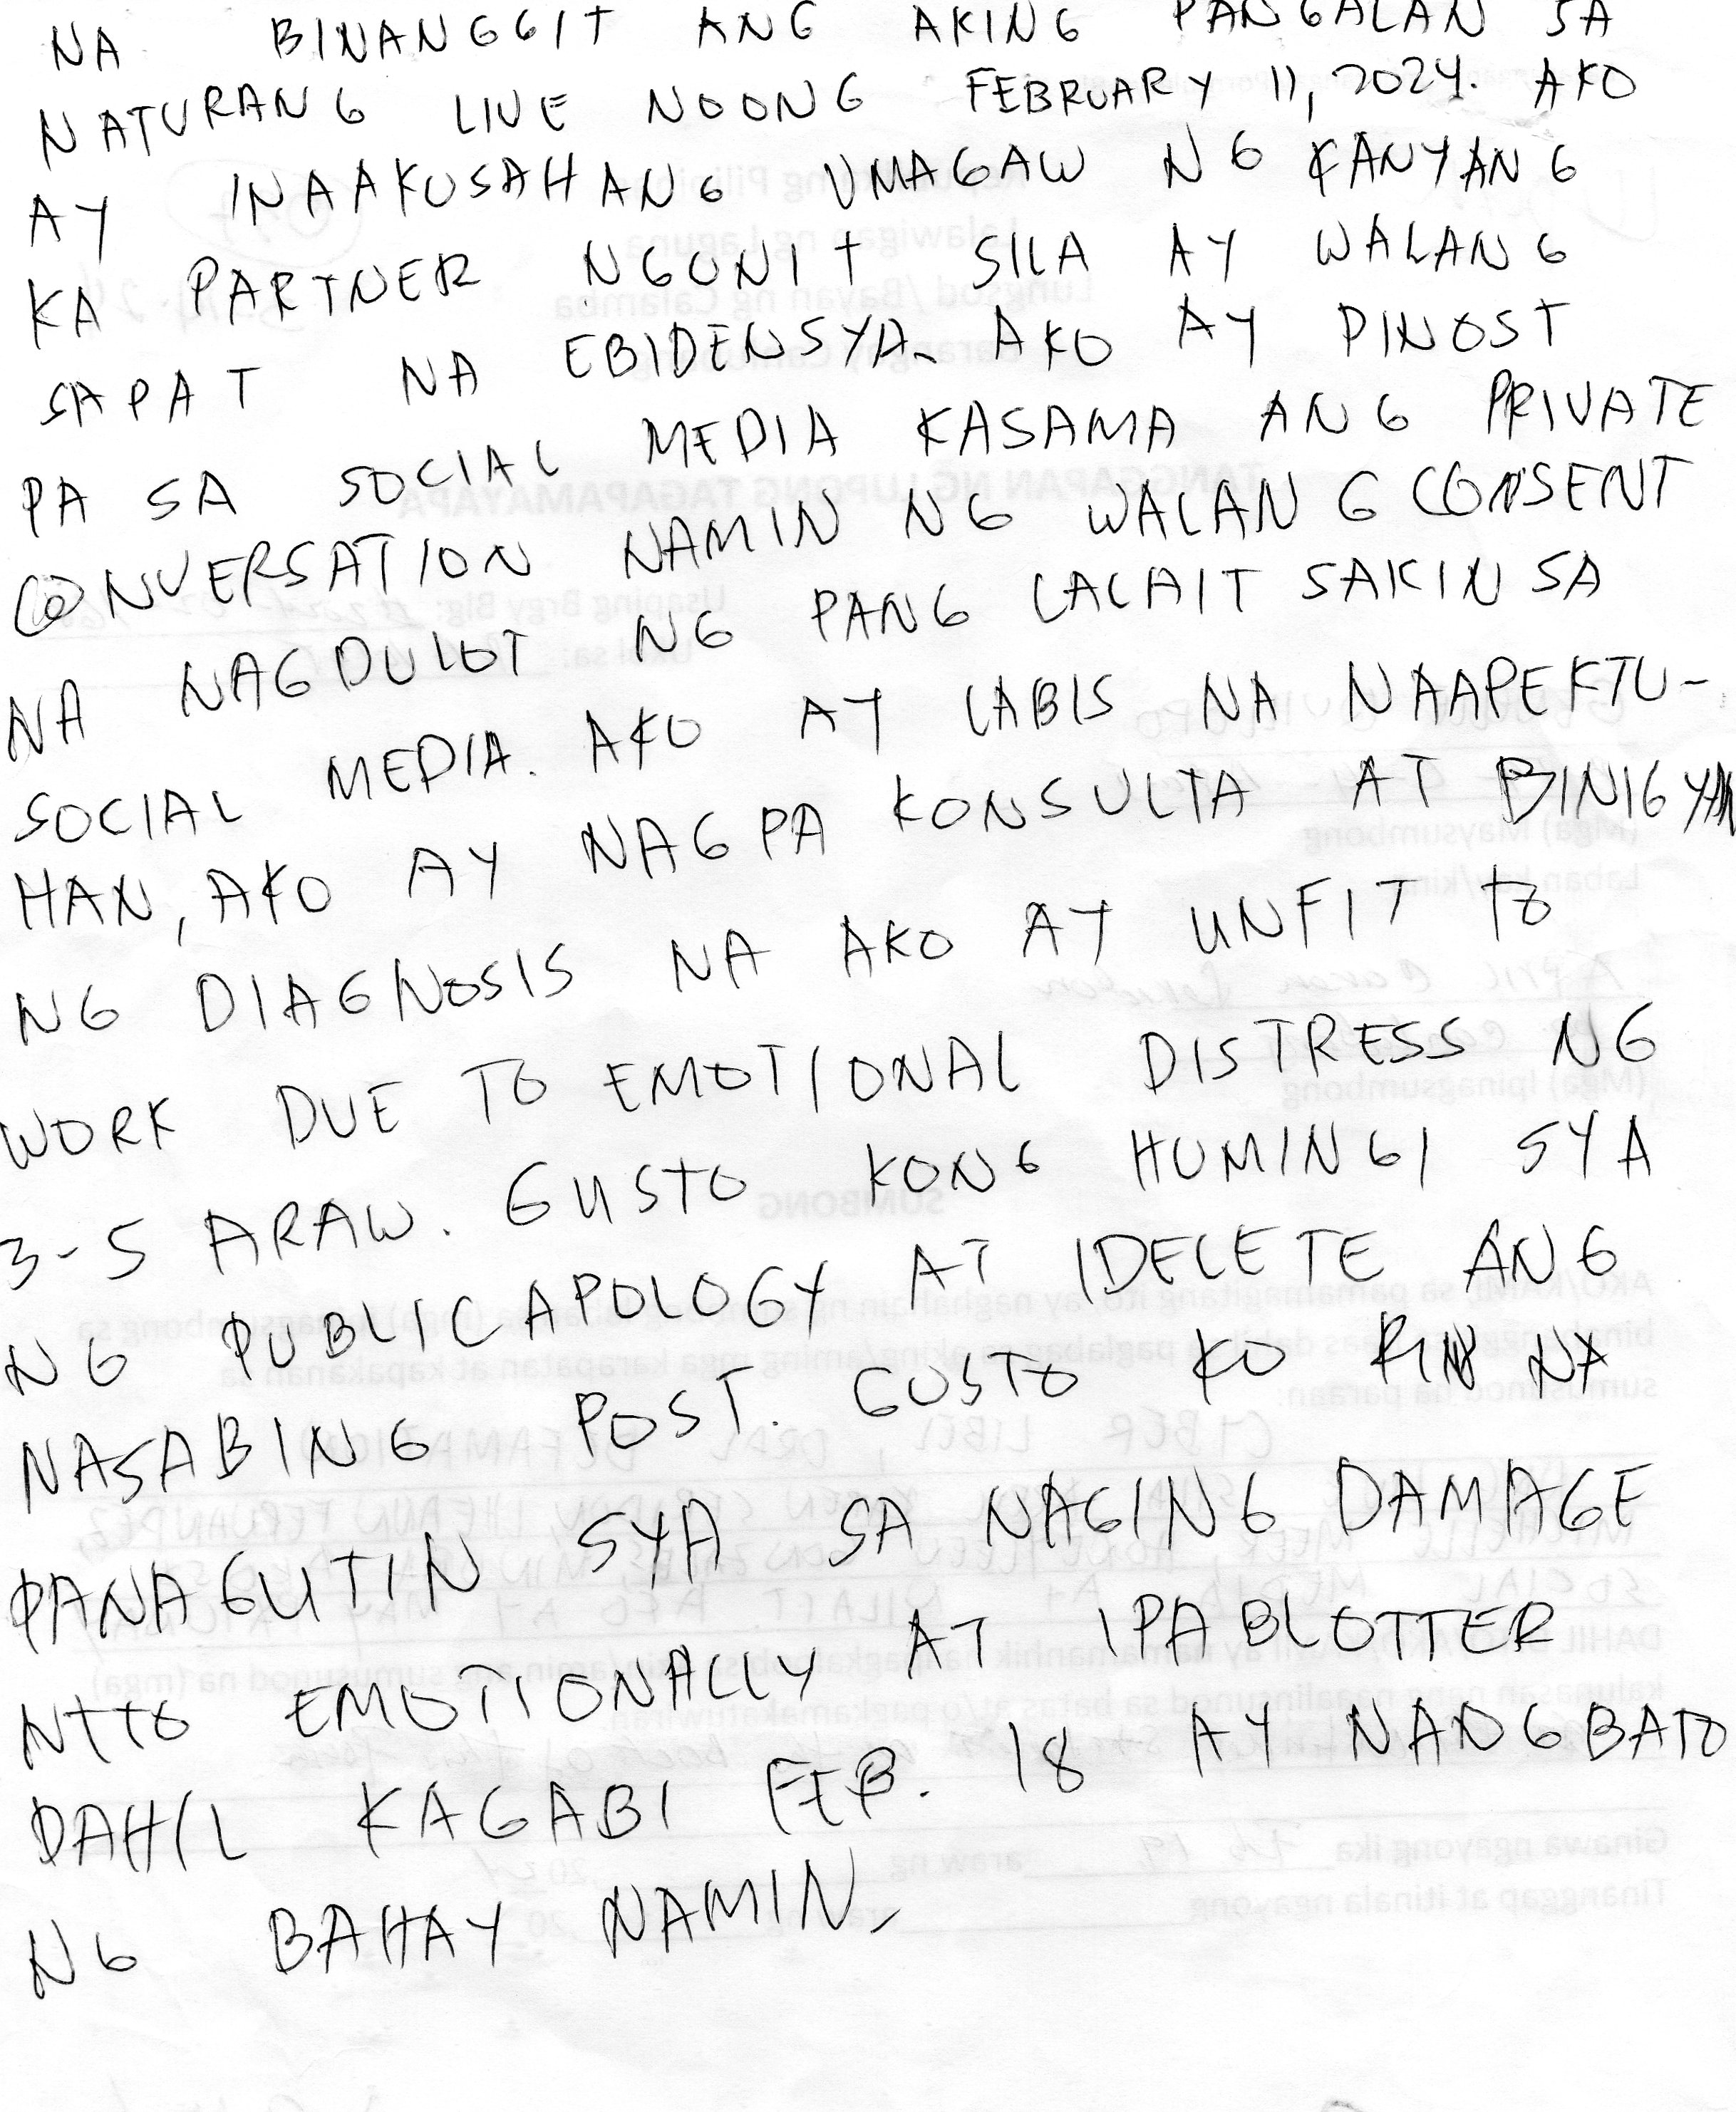 NA BINANGGIT ANG AKING PANGALAN SA
NATURANG LIVE NOONG FEBRUARY 11, 2024. AKO
AY INAAKUSAHANG UMAGAW NG KANYANG
KA PARTNER NGUNIT SILA AY WALANG
SAPAT NA EBIDENSYA. AKO AY PINOST
PA SA SOCIAL MEDIA KASAMA ANG PRIVATE
CONVERSATION NAMIN NG WALANG CONSENT
NA NAGDULOT NG PANG LALAIT SAKIN SA
SOCIAL MEDIA. AKO AY LABIS NA NAAPEKTU-
HAN, AKO AY NAGPA KONSULTA AT BINIGYAN
NG DIAGNOSIS NA AKO AY UNFIT TO
WORK DUE TO EMOTIONAL DISTRESS NG
3-5 ARAW. GUSTO KONG HUMINGI SYA
NG PUBLIC APOLOGY AT IDELETE ANG
NASABING POST. GUSTO KO RIN NA
PANAGUTIN SYA SA NAGING DAMAGE
NITO EMOTIONALLY AT IPABLOTTER
DAHIL KAGABI FEB. 18 AY NANGBATO
NG BAHAY NAMIN.